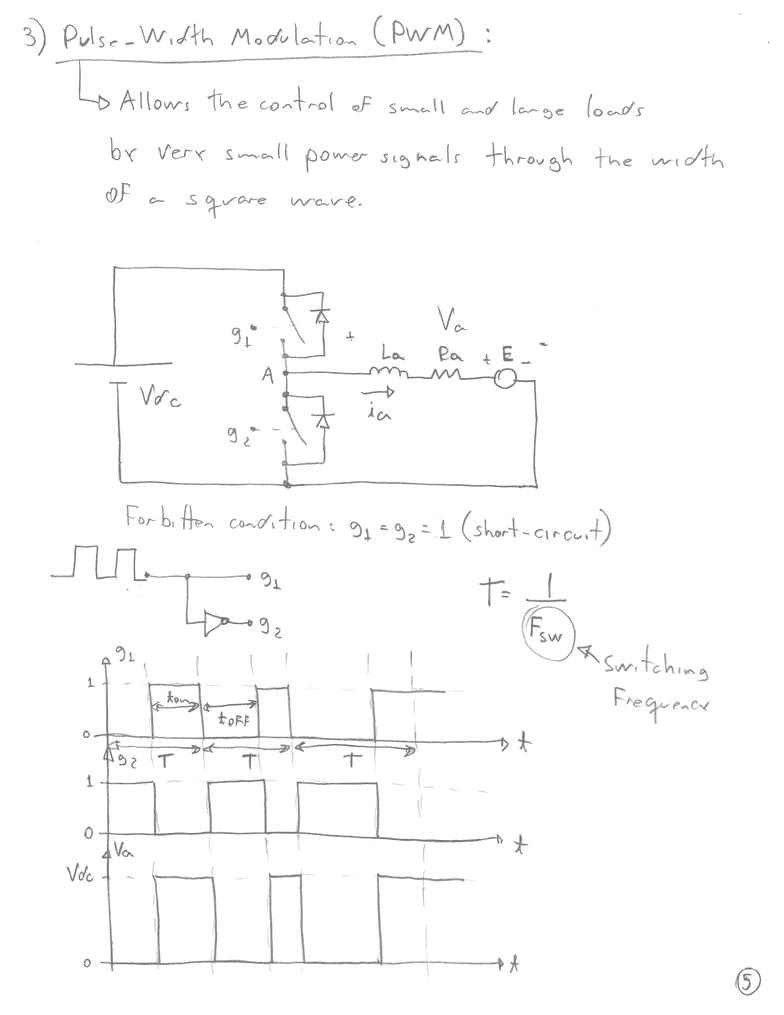 3) Pulse-Width Modulation (PWM) :
Allows the control of small and large loads
by very small power signals through the width
of a square wave.
g1
+
Va
-
La
Ra
+ E -
A
Vdc
ia
g2
Forbitten condition: g1 = g2 = 1 (short-circuit)
g1
g2
T = 1
Fsw
Switching
Frequency
g1
1
ton
toff
0
t
T
T
T
g2
1
0
t
Va
Vdc
0
t
5